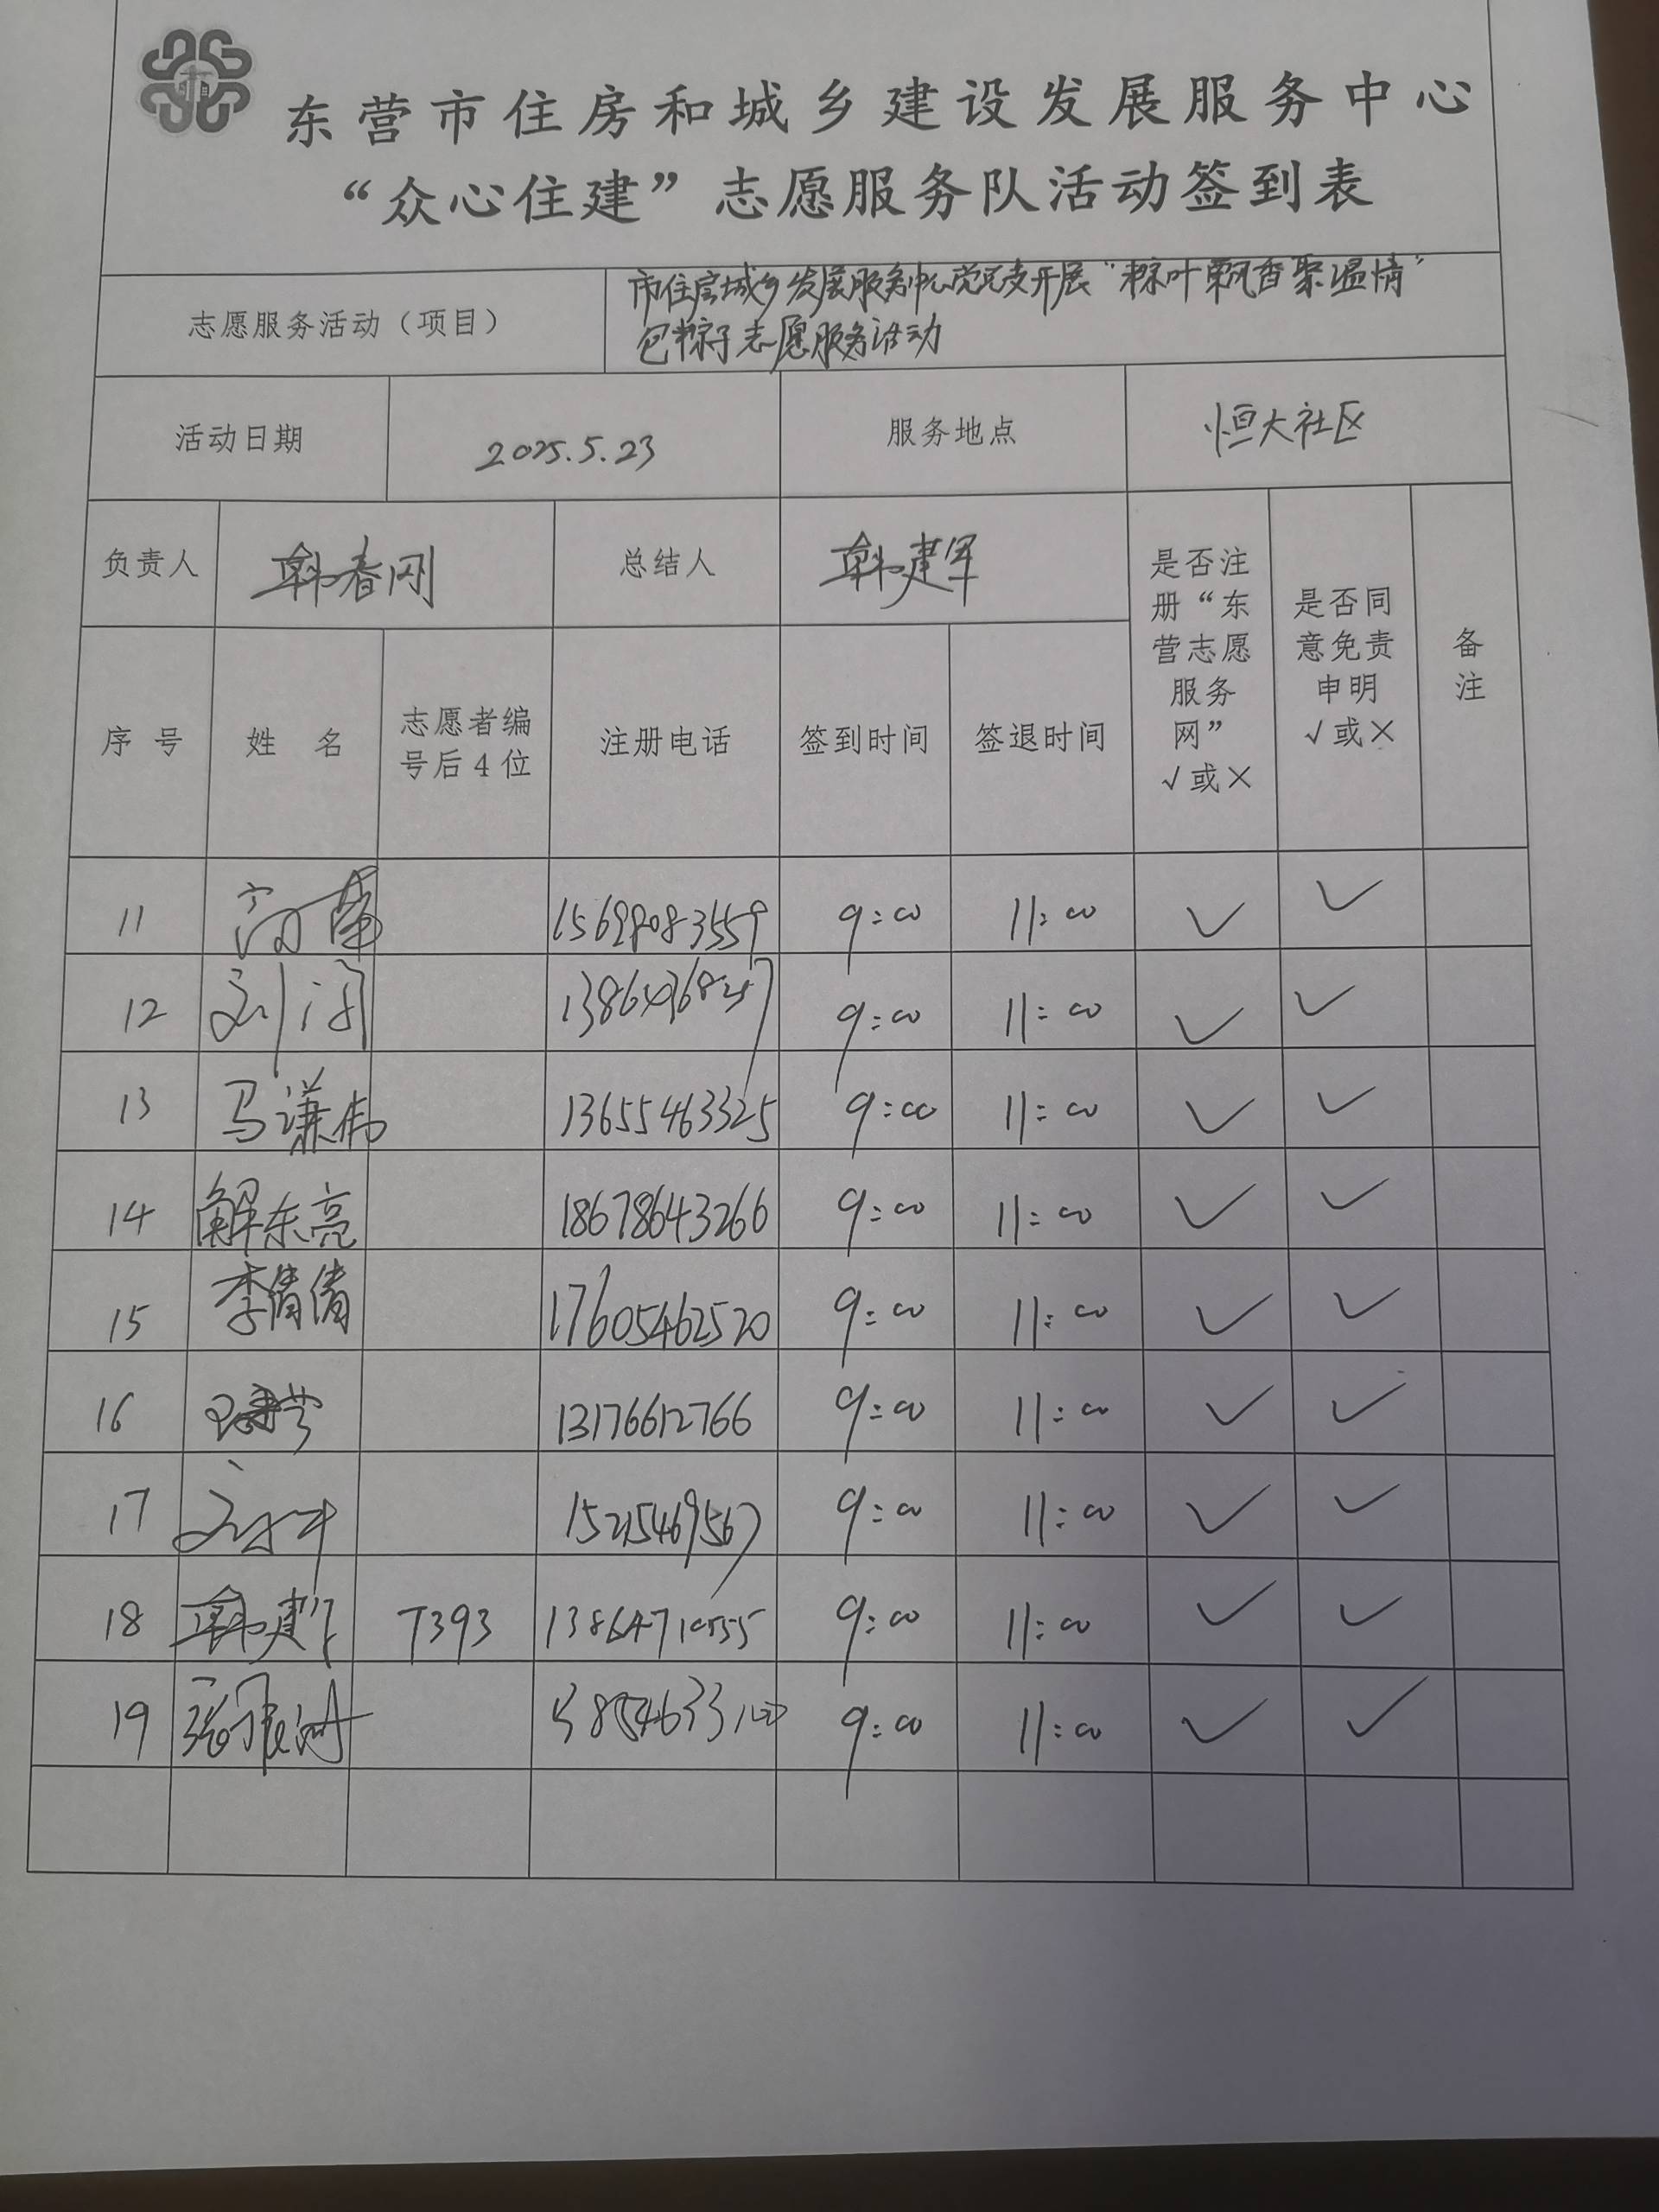 东营市住房和城乡建设发展服务中心
“众心住建”志愿服务队活动签到表
志愿服务活动（项目） 市住房城乡发展服务中心党总支开展“粽叶飘香聚温情”
包粽子志愿服务活动
活动日期 2025.5.23 服务地点 恒大社区
负责人 韩春刚 总结人 韩建军 是否注册“东营志愿服务网”√或× 是否同意免责申明√或× 备注
序号 姓名 志愿者编号后4位 注册电话 签到时间 签退时间
11 15698083559 9:00 11:00 ✓ ✓
12 刘 9:00 11:00 ✓ ✓
13 马谦伟 13655463325 9:00 11:00 ✓ ✓
14 解东亮 18678643266 9:00 11:00 ✓ ✓
15 李倩倩 17605462520 9:00 11:00 ✓ ✓
16 13176612766 9:00 11:00 ✓ ✓
17 15215469567 9:00 11:00 ✓ ✓
18 韩建军 7393 13864710555 9:00 11:00 ✓ ✓
19 9:00 11:00 ✓ ✓